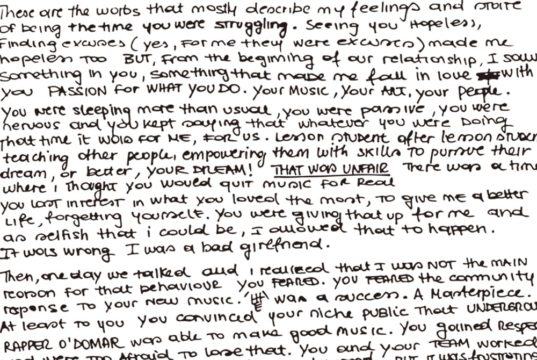 These are the words that mostly describe my feelings and state
of being the time you were struggling. Seeing you Hopeless,
Finding excuses (yes, for me they were excuses) made me
hopeless too BUT, from the beginning of our relationship, I saw
something in you, something that made me fall in love with
you PASSION for WHAT YOU DO. your MUSIC, Your ART, your people.
You were sleeping more than usual, you were passive, you were
nervous and you kept saying that whatever you were doing
that time it was for ME, FOR US. Lesson student after lesson student
teaching other people, empowering them with skills to pursue their
dream, or better, YOUR DREAM! THAT WAS UNFAIR There was a time
where i thought you would quit music for Real
you lost interest in what you loved the most, to give me a better
Life, forgetting yourself. You were giving that up for me and
as selfish that i could be, i allowed that to happen.
It was wrong I was a bad girlfriend.
Then, one day we talked and i realized that I was NOT the MAIN
reason for that behaviour You FEARED. you FEARED the community
response to your new music. was a success. A Masterpiece.
At least to you You convinced your niche public That UNDERGROUND
RAPPER O'DOMAR was able to make good music. You gained Respe
were too Afraid to lose that. You and your TEAM worked